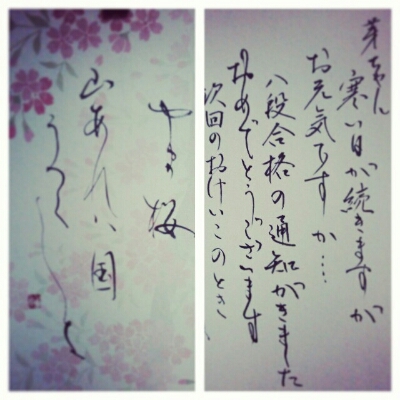 やま桜
山あれハ国
うつくし
芽ちゃん
寒い日が続きますが
お元気ですか…
八段合格の通知がきました
おめでとうございます
次回のおけいこのとき